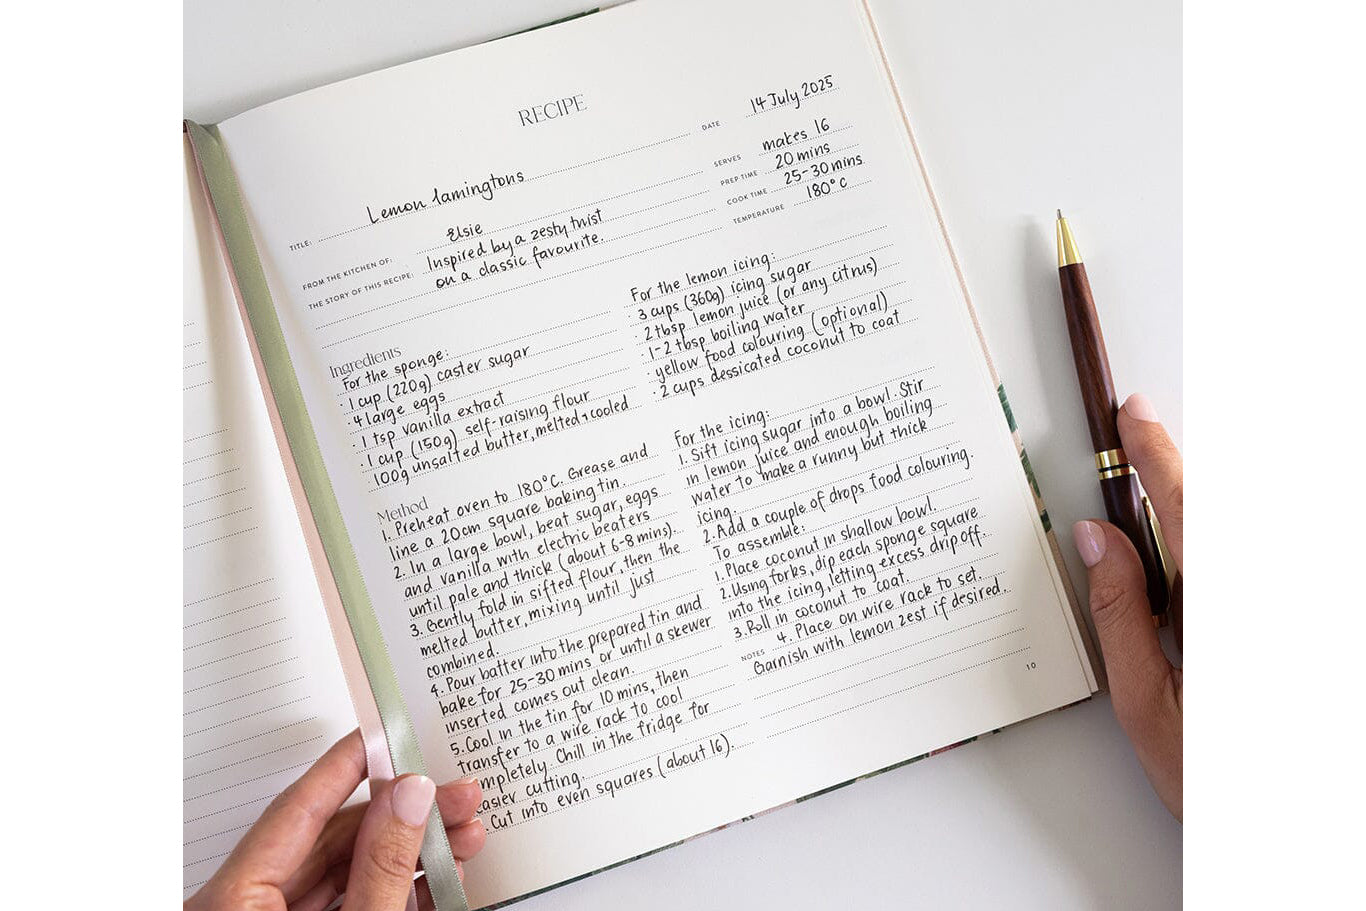 RECIPE
DATE 14 July 2025
TITLE: Lemon lamingtons
SERVES makes 16
FROM THE KITCHEN OF: Elsie
PREP TIME 20 mins
THE STORY OF THIS RECIPE: Inspired by a zesty twist
on a classic favourite.
COOK TIME 25-30 mins
TEMPERATURE 180°C
Ingredients
For the sponge:
· 1 cup (220g) caster sugar
· 4 large eggs
· 1 tsp vanilla extract
· 1 cup (150g) self-raising flour
100g unsalted butter, melted + cooled
For the lemon icing:
· 3 cups (360g) icing sugar
· 2 tbsp lemon juice (or any citrus)
· 1-2 tbsp boiling water
· yellow food colouring (optional)
· 2 cups dessicated coconut to coat
Method
1. Preheat oven to 180°C. Grease and
line a 20cm square baking tin.
2. In a large bowl, beat sugar, eggs
and vanilla with electric beaters
until pale and thick (about 6-8 mins).
3. Gently fold in sifted flour, then the
melted butter, mixing until just
combined.
4. Pour batter into the prepared tin and
bake for 25-30 mins or until a skewer
inserted comes out clean.
5. Cool in the tin for 10 mins, then
transfer to a wire rack to cool
mpletely. Chill in the fridge for
easier cutting.
. Cut into even squares (about 16).
For the icing:
1. Sift icing sugar into a bowl. Stir
in lemon juice and enough boiling
water to make a runny but thick
icing.
2. Add a couple of drops food colouring.
To assemble:
1. Place coconut in shallow bowl.
2. Using forks, dip each sponge square
into the icing, letting excess drip off.
3. Roll in coconut to coat.
4. Place on wire rack to set.
NOTES Garnish with lemon zest if desired.
10